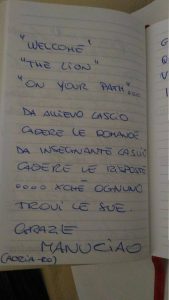 "WELCOME"
"THE LION"
"ON YOUR PATH"...
DA ALLIEVO LASCIO
CADERE LE DOMANDE
DA INSEGNANTE LASCIO
CADERE LE RISPOSTE
.... XCHÉ OGNUNO
TROVI LE SUE.
GRAZIE
MANUCIAO
(ADRIA-RO)